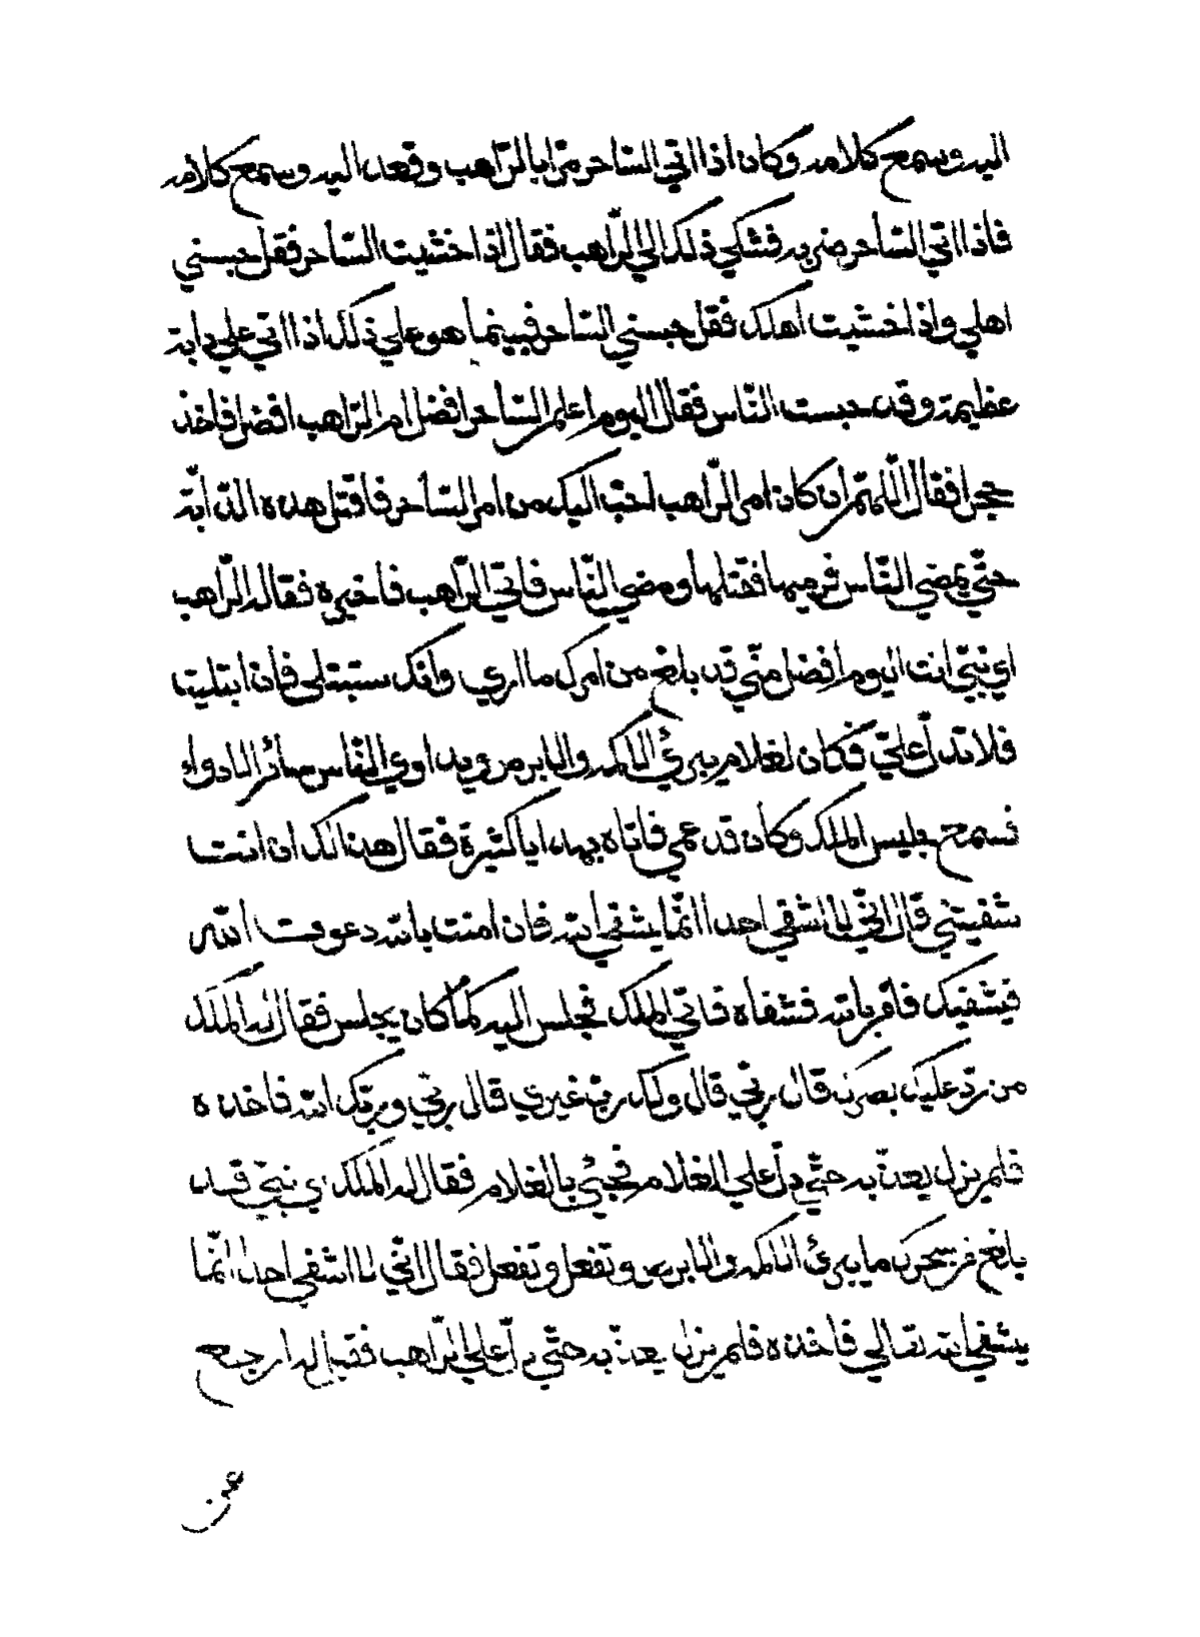 اليه وسمع كلامه وكان اذا اتي السّاحر مرّ ابا لرّاهب وقعد اليه وسمع كلامه
فاذا اتي السّاحر ضربه فشكي ذلك الي الرّاهب فقال اذا خشيت السّاحر فقل حبسني
اهلي واذا خشيت اهلك فقل حبسني السّاحر فبينما هو علي ذلك اذا اتي علي دابة
عظيمة وقد حبست النّاس فقال اليوم اعلم السّاحر افضل ام الرّاهب افضل فاخذ
حجرا فقال اللّهمّ ان كان امر الرّاهب احبّ اليك من امر السّاحر فاقتل هذه الدّابّة
حتّي يمضي النّاس فرميها فقتلها ومضي النّاس فاتي الرّاهب فاخبره فقال له الرّاهب
اي نبيّ انت اليوم افضل منّي قد بلغ من امرك ما اري وانك ستبتلي فان ابتليت
فلا تدلّ عليّ فكان لغلام يبرئ الاكمه والابرص ويداوي النّاس سائر الادواء
فسمع جليس الملك وكان قد عمي فاتاه بهدايا كثيرة فقال هذا لك ان انت
شفيتني قال انّي لا اشفي احدا انّما يشفي الله فان امنت بالله دعوت الله
فيشفيك فاقر بالله فشفاه فاتي الملك فجلس اليه كما كان يجلس فقال له الملك
من ردّ عليك بصرك قال ربّي قال ولك ربّ غيري قال ربّي وربّك الله فاخذه
فلم يزل يعذّبه حتّي دلّ علي الغلام فجيئ بالغلام فقال له الملك اي نبيّ قد
بلغ من سحرك ما يبرئ الاكمه والابرص وتفعل وتفعل فقال انّي لا اشفي احدا انّما
يشفي الله تعالي فاخذه فلم يزل يعذّبه حتّي دلّ علي الرّاهب فقيل له ارجع
عن